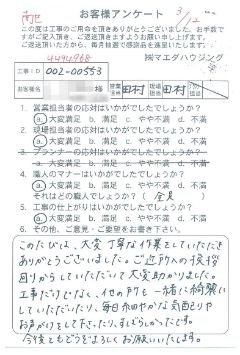 お客様アンケート
3/12
この度は工事のご用命を頂きありがとうございました。お手数で
すがご記入頂き、ご返送頂きますようお願い申し上げます。
ご返送頂いた方から、毎月抽選で感謝品を進呈いたします。
4494968
㈱マエダハウジング
工事ID 002-00553
お客様名 様 営業担当 田村 現場担当 田村
1. 営業担当者の応対はいかがでしたでしょうか?
a. 大変満足 b. 満足 c. やや不満 d. 不満
2. 現場担当者の応対はいかがでしたでしょうか?
a. 大変満足 b. 満足 c. やや不満 d. 不満
3. プランナーの応対はいかがでしたでしょうか?
a. 大変満足 b. 満足 c. やや不満 d. 不満
4. 職人のマナーはいかがでしたでしょうか?
a. 大変満足 b. 満足 c. やや不満 d. 不満
それはどの職人でしょうか? (全員)
5. 工事の仕上がりはいかがでしたでしょうか?
a. 大変満足 b. 満足 c. やや不満 d. 不満
6. その他、ご意見・ご要望をお書き下さい。
このたびは、大変丁寧な作業をしていただき
ありがとうございました。ご近所への挨拶
回りからしていただいて大変助かりました。
工事だけでなく、他の所も一緒に綺麗に
していただいたり、毎日細やかな気配りや
お声がけをして下さったり、すばらしかったです。
今後ともどうぞよろしくお願いいたします。